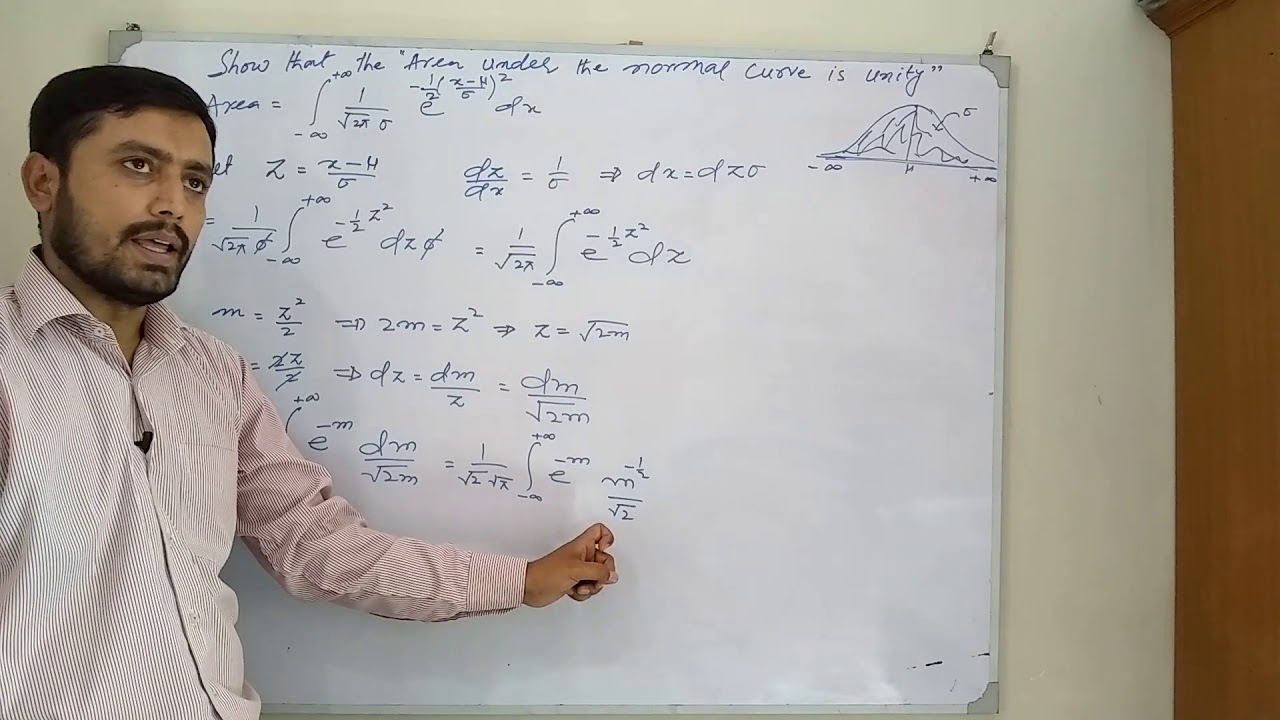 Show that the "Area under the normal curve is unity"
Area = ∫_{-∞}^{+∞} 1/(√2π σ) e^{-1/2((x-μ)/σ)^2} dx
σ
-∞ μ +∞
et Z = (x-μ)/σ dz/dx = 1/σ ⇒ dx = dzσ
= 1/(√2π σ) ∫_{-∞}^{+∞} e^{-1/2 z^2} dz σ = 1/√2π ∫_{-∞}^{+∞} e^{-1/2 z^2} dz
m = z^2/2 ⇒ 2m = z^2 ⇒ z = √2m
= 2z/2 ⇒ dz = dm/z = dm/√2m
∫^{+∞} e^{-m} dm/√2m = 1/(√2 √π) ∫_{-∞}^{+∞} e^{-m} m^{-1/2}/√2